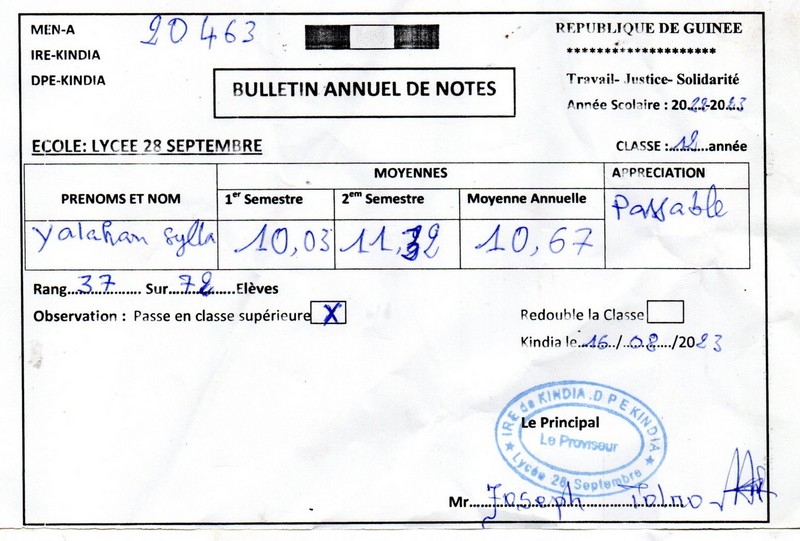 MEN-A
20463
REPUBLIQUE DE GUINEE
IRE-KINDIA
*******************
DPE-KINDIA
BULLETIN ANNUEL DE NOTES
Travail- Justice- Solidarité
Année Scolaire : 2022-2023
ECOLE: LYCEE 28 SEPTEMBRE
CLASSE :..12....année
PRENOMS ET NOM
MOYENNES
APPRECIATION
1er Semestre
2em Semestre
Moyenne Annuelle
Yalahan Sylla
10,03
11,32
10,67
Passable
Rang...37......... Sur...72....Elèves
Observation : Passe en classe supérieure X
Redouble la Classe
Kindia le..16../..08.../2023
IRE de KINDIA.DPE KINDIA
Le Principal
Le Proviseur
Lycée 28 Septembre
Mr...Joseph